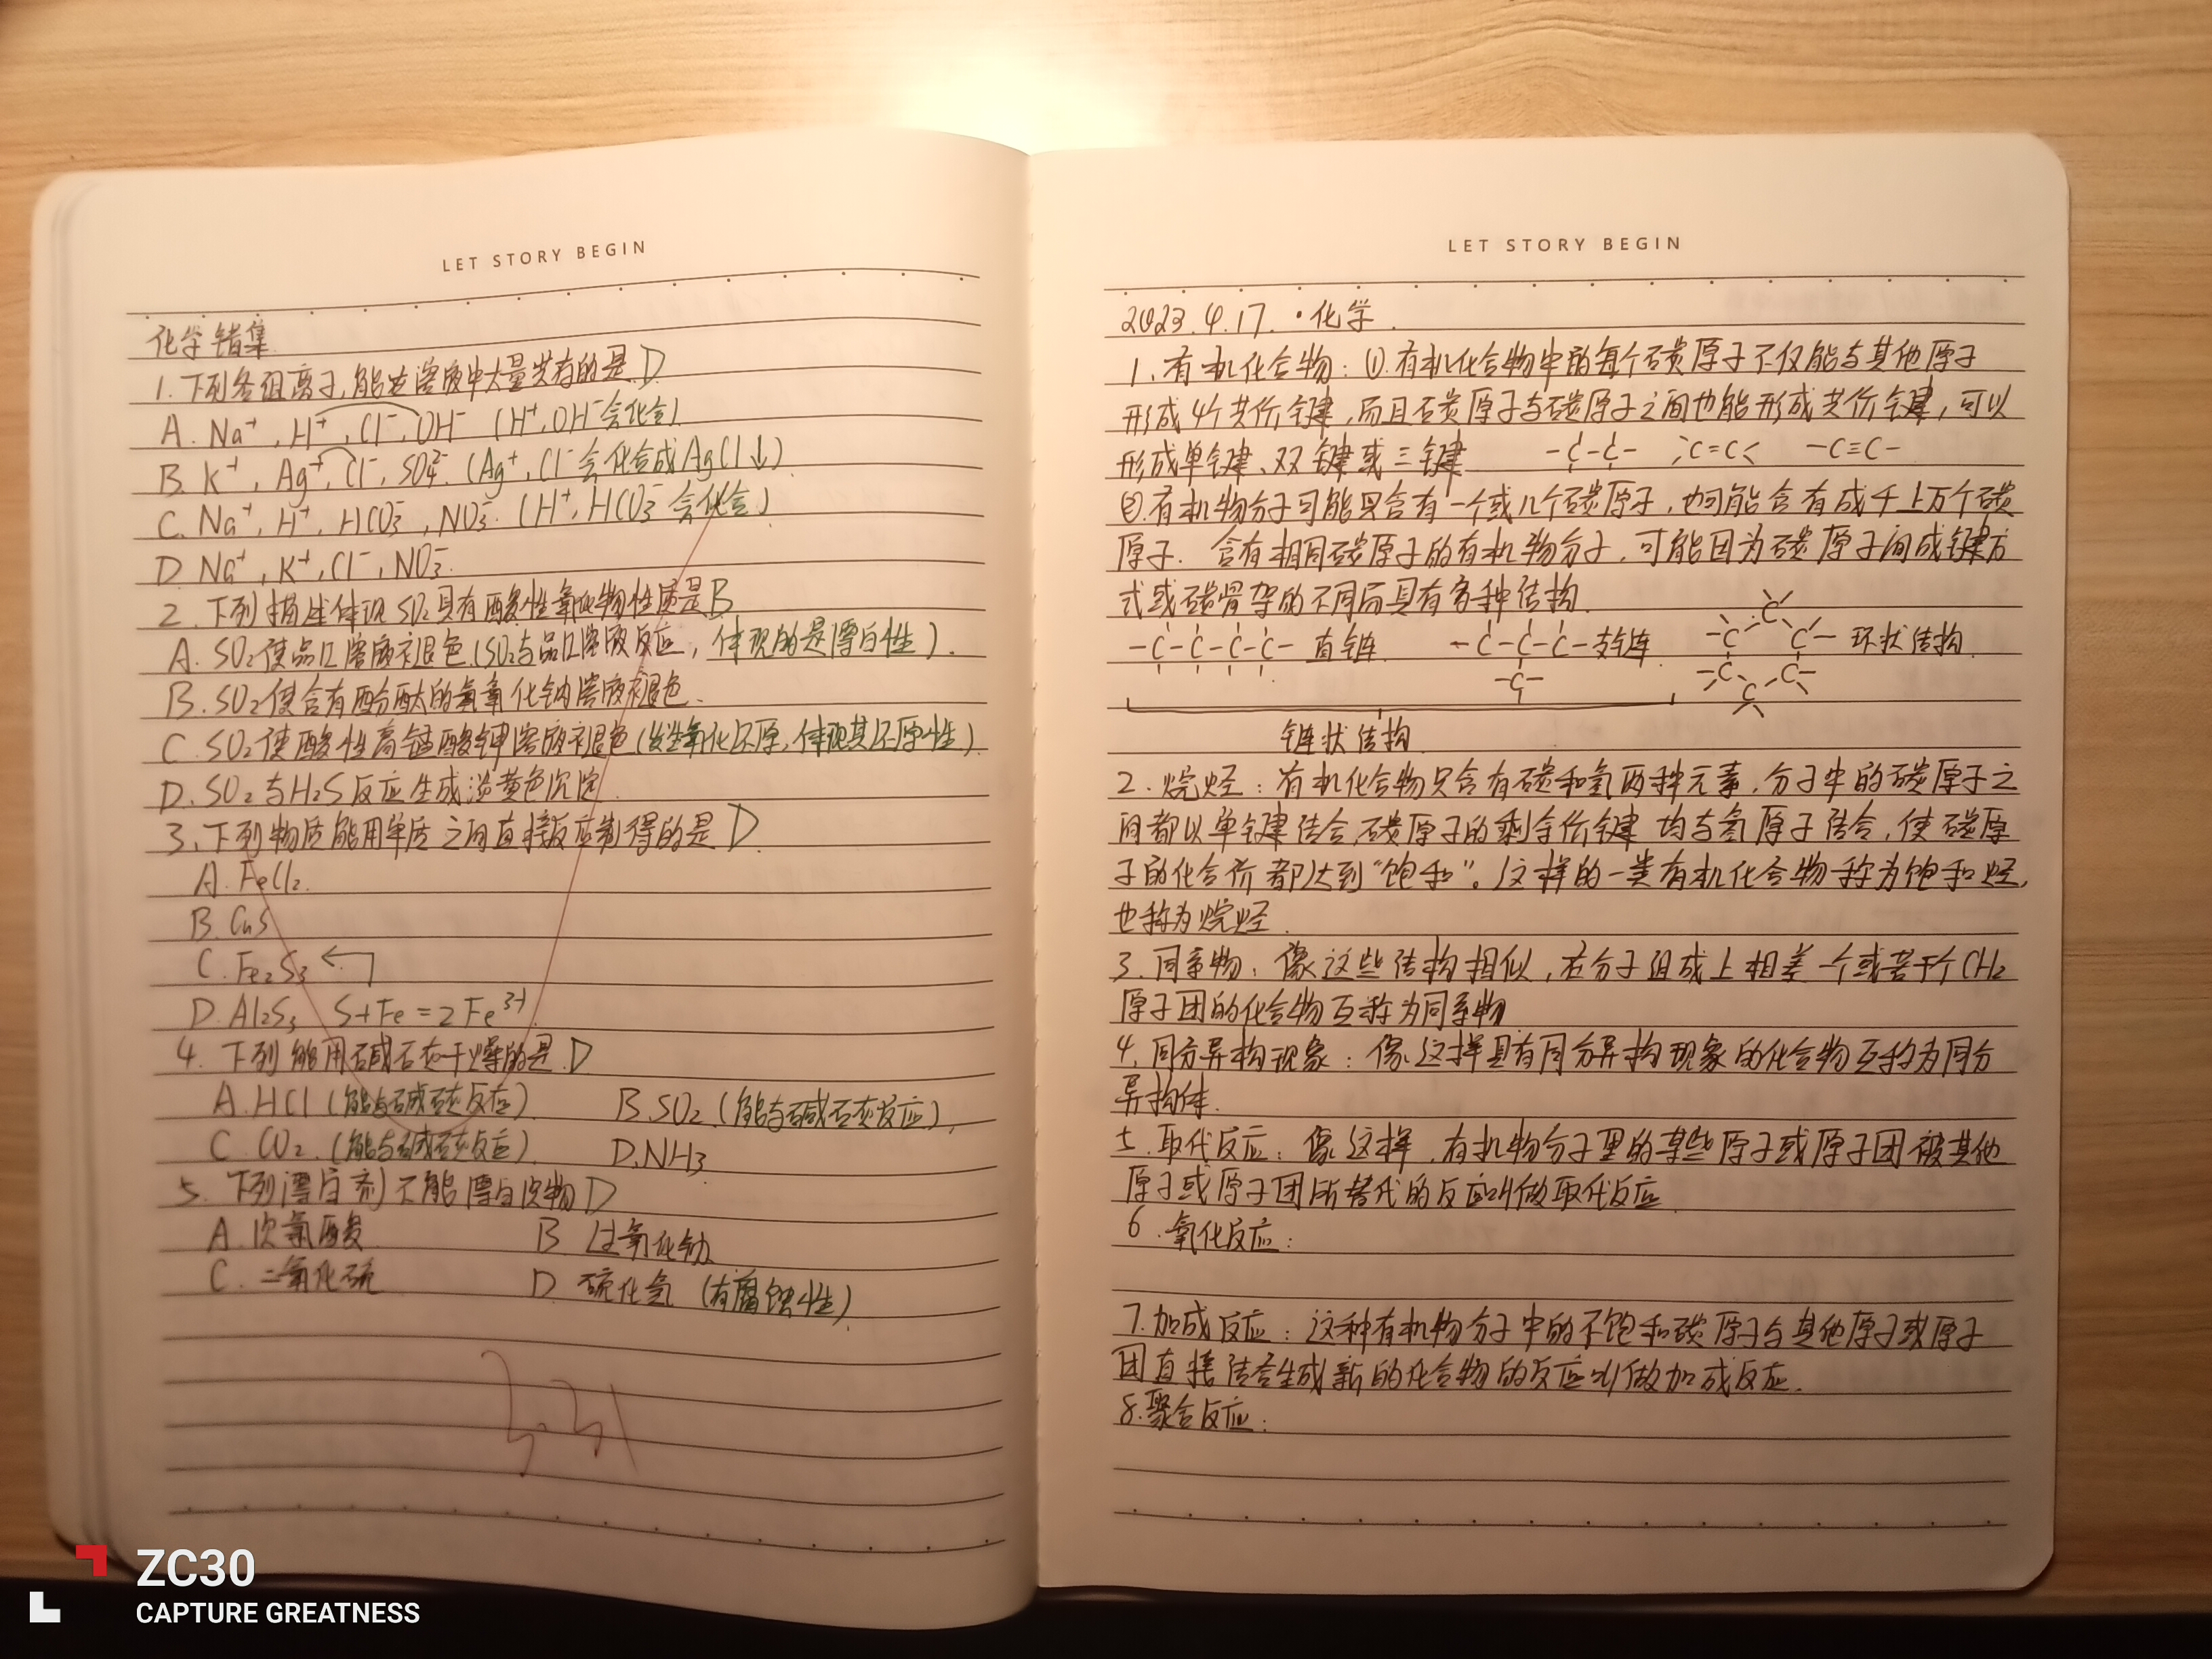 LET STORY BEGIN
化学错集
1.下列各组离子,能在溶液中大量共存的是D
A. Na⁺, H⁺, Cl⁻, OH⁻ (H⁺, OH⁻会化合)
B. K⁺, Ag⁺, Cl⁻, SO₄²⁻ (Ag⁺, Cl⁻会化合成AgCl↓)
C. Na⁺, H⁺, HCO₃⁻, NO₃⁻. (H⁺, HCO₃⁻会化合)
D Na⁺, K⁺, Cl⁻, NO₃⁻.
2. 下列描述体现SO₂具有酸性氧化物性质是B
A. SO₂使品红溶液褪色(SO₂与品红溶液反应, 体现的是漂白性).
B. SO₂使含有酚酞的氢氧化钠溶液褪色.
C. SO₂使酸性高锰酸钾溶液褪色(发生氧化还原,体现其还原性).
D. SO₂与H₂S反应生成淡黄色沉淀.
3. 下列物质能用单质之间直接反应制得的是D
A. FeCl₂.
B. CuS
C. Fe₂S₃
D. Al₂S₃ S+Fe=2Fe³⁺.
4. 下列能用碱石灰干燥的是D
A. HCl (能与碱石灰反应). B. SO₂ (能与碱石灰反应).
C. CO₂. (能与碱石灰反应). D. NH₃
5. 下列漂白剂不能漂白衣物D
A. 次氯酸 B 过氧化钠
C. 二氧化硫 D 硫化氢 (有腐蚀性)
LET STORY BEGIN
2023.4.17.·化学.
1.有机化合物: ①.有机化合物中的每个碳原子不仅能与其他原子
形成4个共价键,而且碳原子与碳原子之间也能形成共价键,可以
形成单键、双键或三键 -C-C- >C=C< -C≡C-
②.有机物分子可能只含有一个或几个碳原子,也可能含有成千上万个碳
原子. 含有相同碳原子的有机物分子,可能因为碳原子间成键方
式或碳骨架的不同而具有多种结构.
-C-C-C-C- 直链. -C-C-C- 支链. 环状结构.
链状结构.
2. 烷烃: 有机化合物只含有碳和氢两种元素,分子中的碳原子之
间都以单键结合,碳原子的剩余价键均与氢原子结合,使碳原
子的化合价都达到“饱和”.这样的一类有机化合物称为饱和烃,
也称为烷烃.
3.同系物: 像这些结构相似,在分子组成上相差一个或若干个CH₂
原子团的化合物互称为同系物
4.同分异构现象: 像这样具有同分异构现象的化合物互称为同分
异构体.
5.取代反应: 像这样,有机物分子里的某些原子或原子团被其他
原子或原子团所替代的反应叫做取代反应
6.氧化反应:
7.加成反应: 这种有机物分子中的不饱和碳原子与其他原子或原子
团直接结合生成新的化合物的反应叫做加成反应.
8.聚合反应:
ZC30
CAPTURE GREATNESS